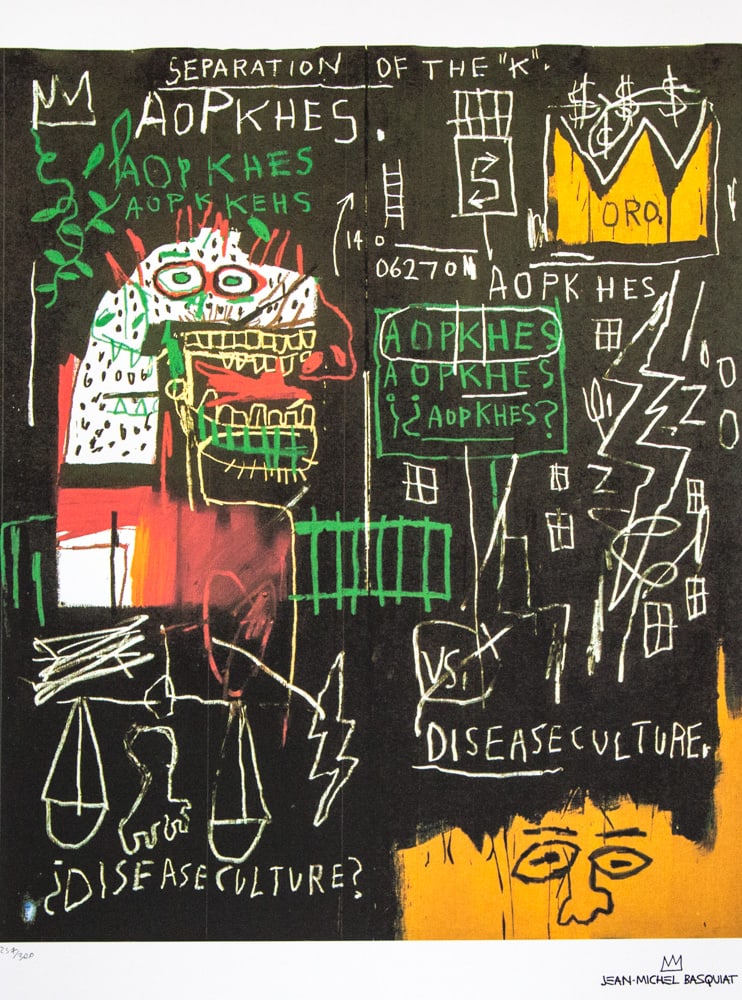 SEPARATION OF THE "K".
AOPKHES.
AOPKHES
AOPKKEHS
S
$ $ $
¢
ORO.
14
06270
AOPKHES
AOPKHES
AOPKHES
¡¿AOPKHES?
VS.
X
DISEASECULTURE.
¿DISEASECULTURE?
JEAN-MICHEL BASQUIAT